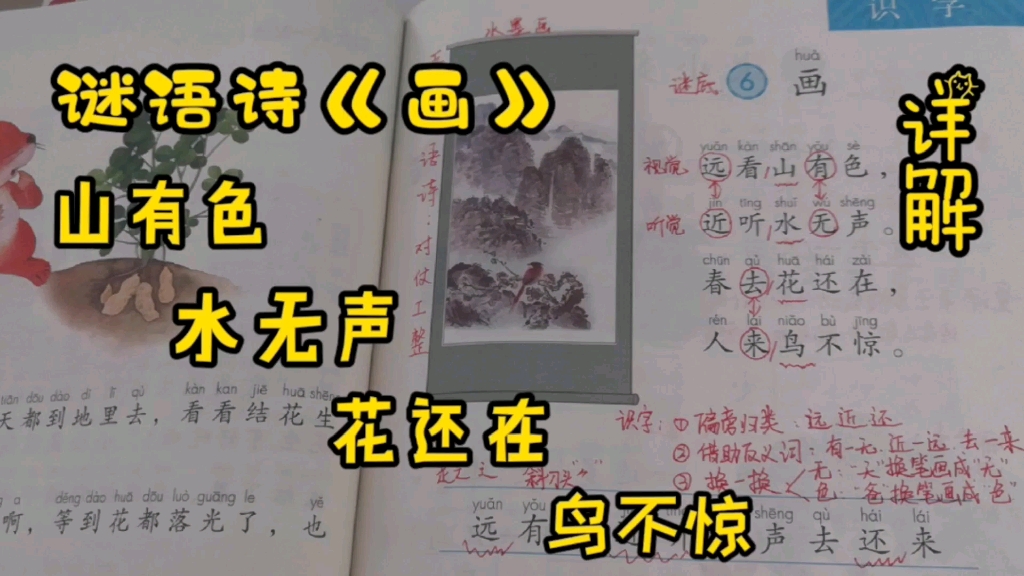 谜语诗《画》
山有色
水无声
花还在
鸟不惊
详解
识字
水墨画
语诗:对仗工整
谜底 6 画
huà
yuǎn kàn shān yǒu sè
视觉 远看山有色,
jìn tīng shuǐ wú shēng
听觉 近听水无声。
chūn qù huā hái zài
春去花还在,
rén lái niǎo bù jīng
人来鸟不惊。
识字:①偏旁归类:远近还
②借助反义词:有一无 近一远 去一来
③换一换 无:"天"换笔画成"无"
色:"爸"换笔画成"色"
yuǎn yǒu
远有
shēng qù hái lái
声去还来
tiān dōu dào dì lǐ qù kàn kan jiē huā shēng
天都到地里去,看看结花生
děng dào huā dōu luò guāng le yě
啊,等到花都落光了,也